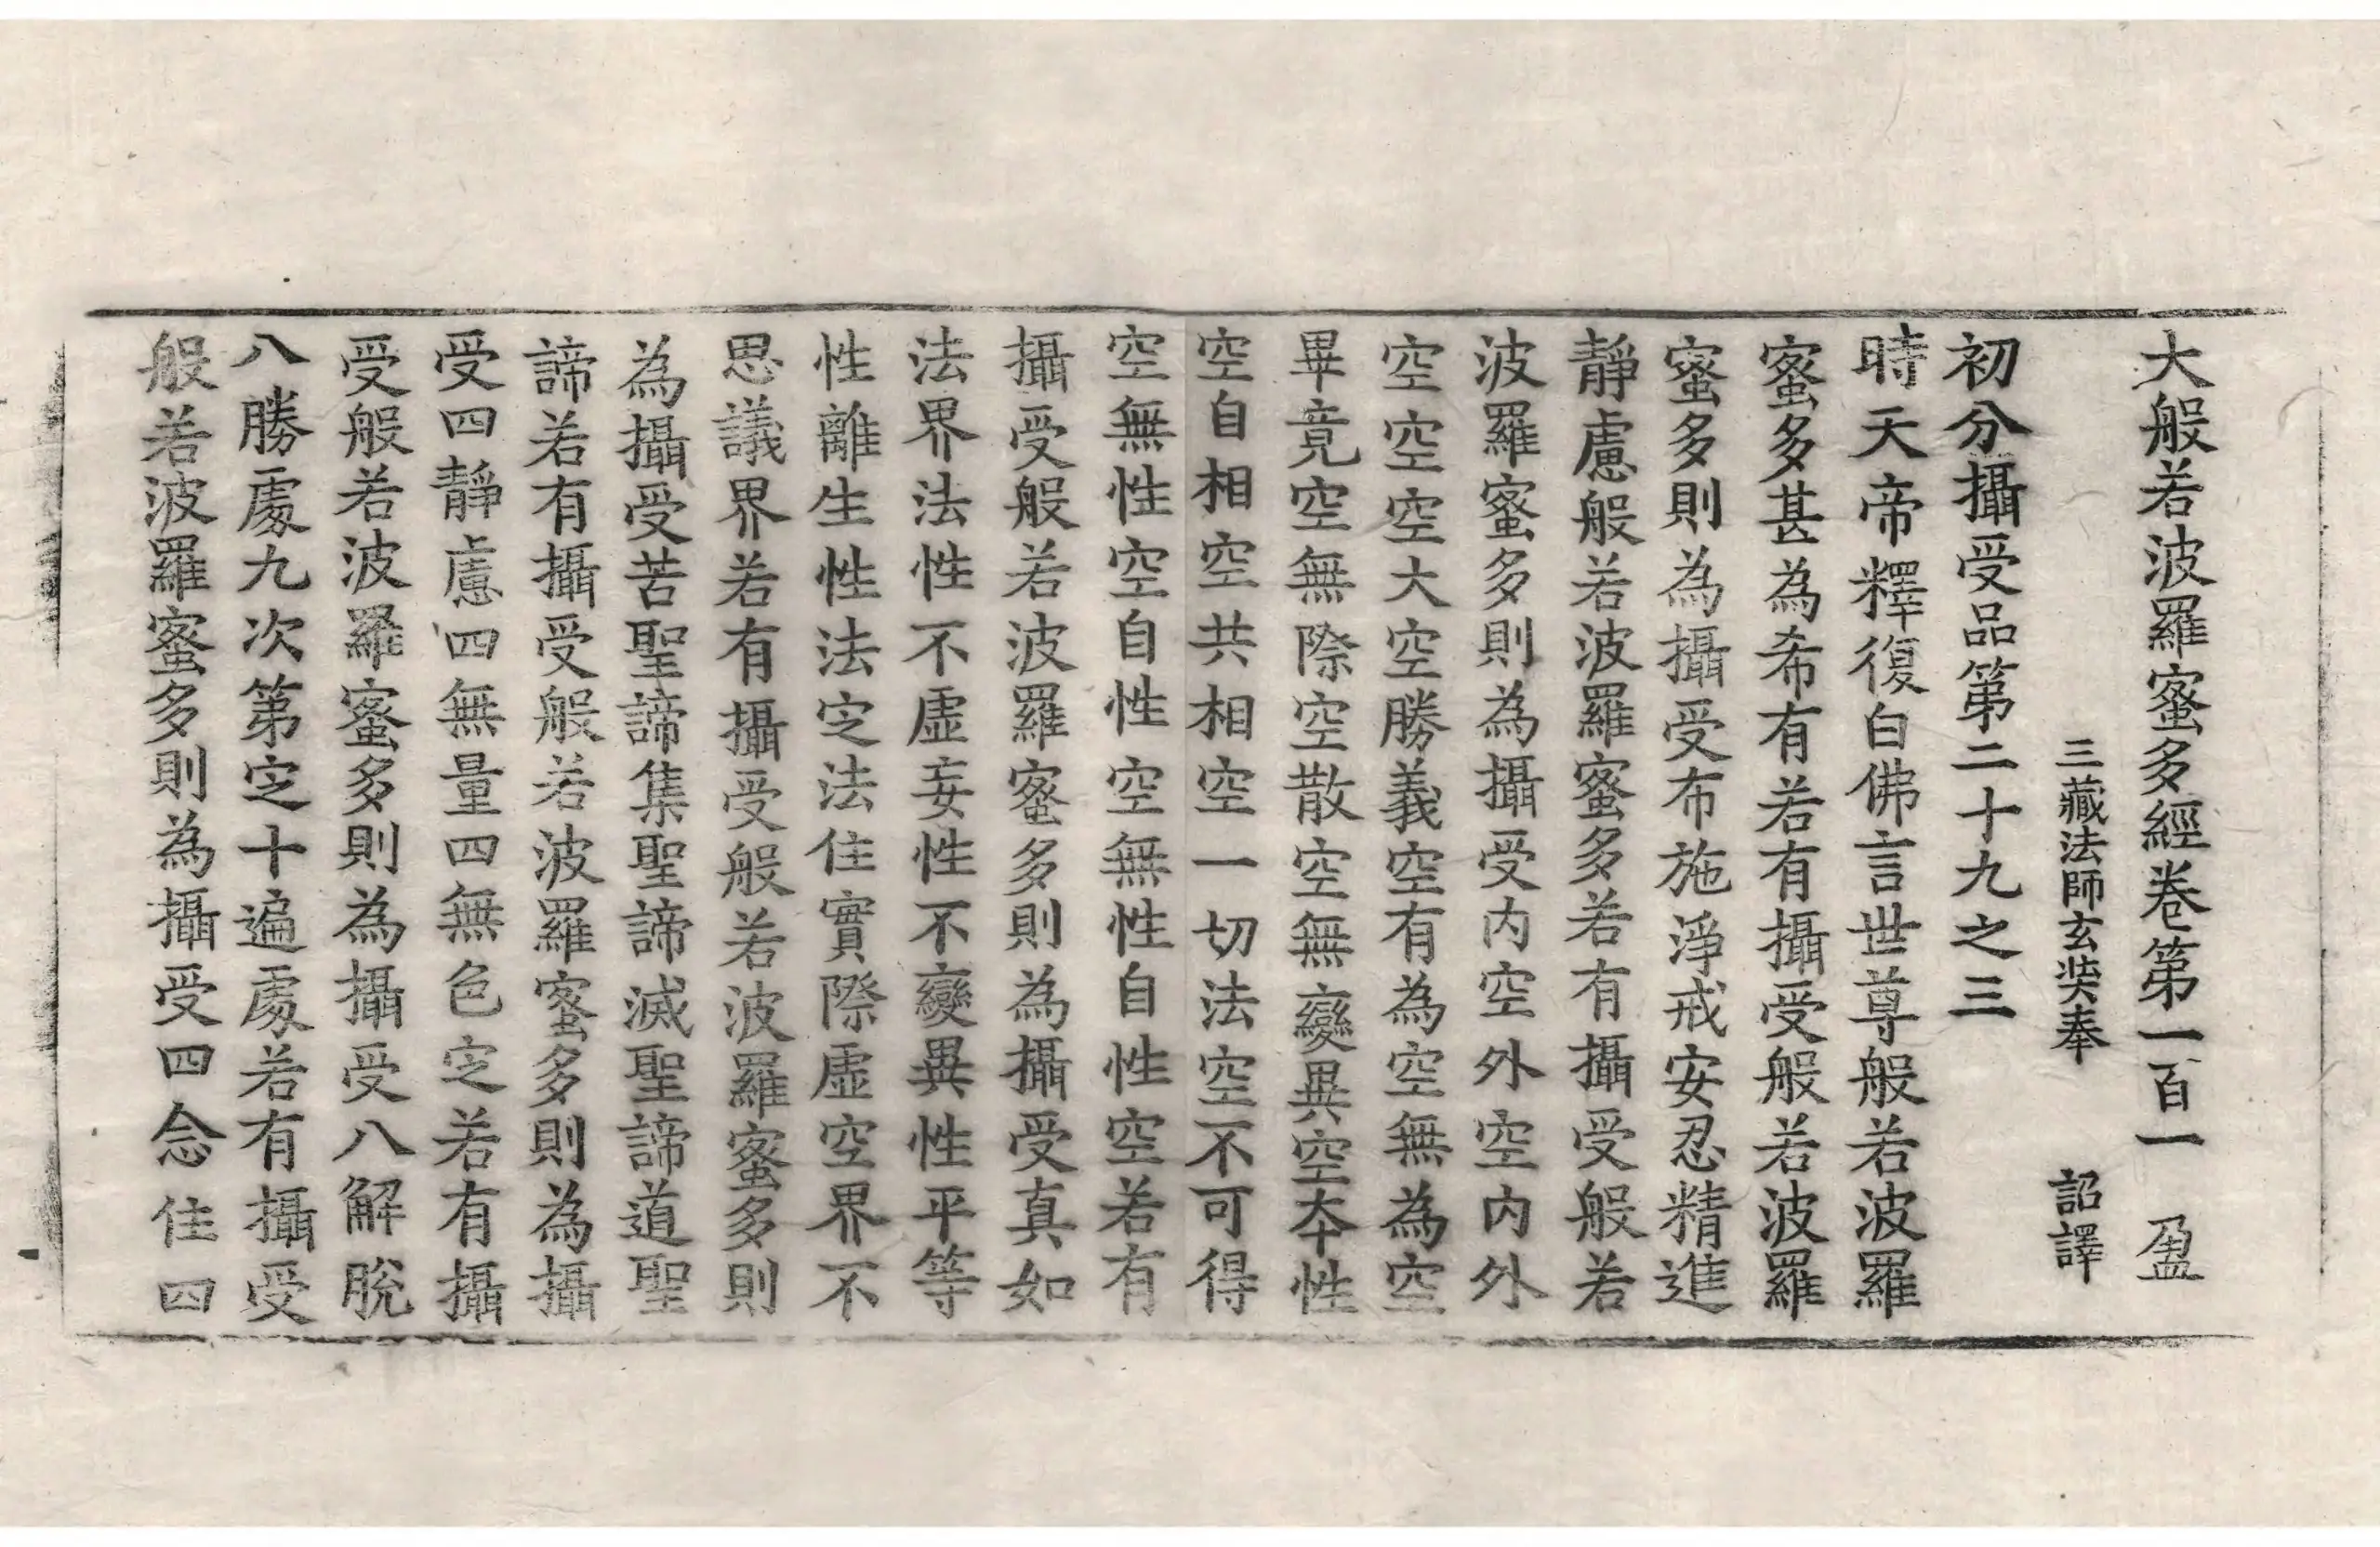 大般若波羅蜜多經卷第一百一　盈
三藏法師玄奘奉　詔譯
初分攝受品第二十九之三
時天帝釋復白佛言世尊般若波羅
蜜多甚為希有若有攝受般若波羅
蜜多則為攝受布施淨戒安忍精進
靜慮般若波羅蜜多若有攝受般若
波羅蜜多則為攝受内空外空内外
空空空大空勝義空有為空無為空
畢竟空無際空散空無變異空本性
空自相空共相空一切法空不可得
空無性空自性空無性自性空若有
攝受般若波羅蜜多則為攝受真如
法界法性不虛妄性不變異性平等
性離生性法定法住實際虛空界不
思議界若有攝受般若波羅蜜多則
為攝受苦聖諦集聖諦滅聖諦道聖
諦若有攝受般若波羅蜜多則為攝
受四靜慮四無量四無色定若有攝
受般若波羅蜜多則為攝受八解脫
八勝處九次第定十遍處若有攝受
般若波羅蜜多則為攝受四念住四